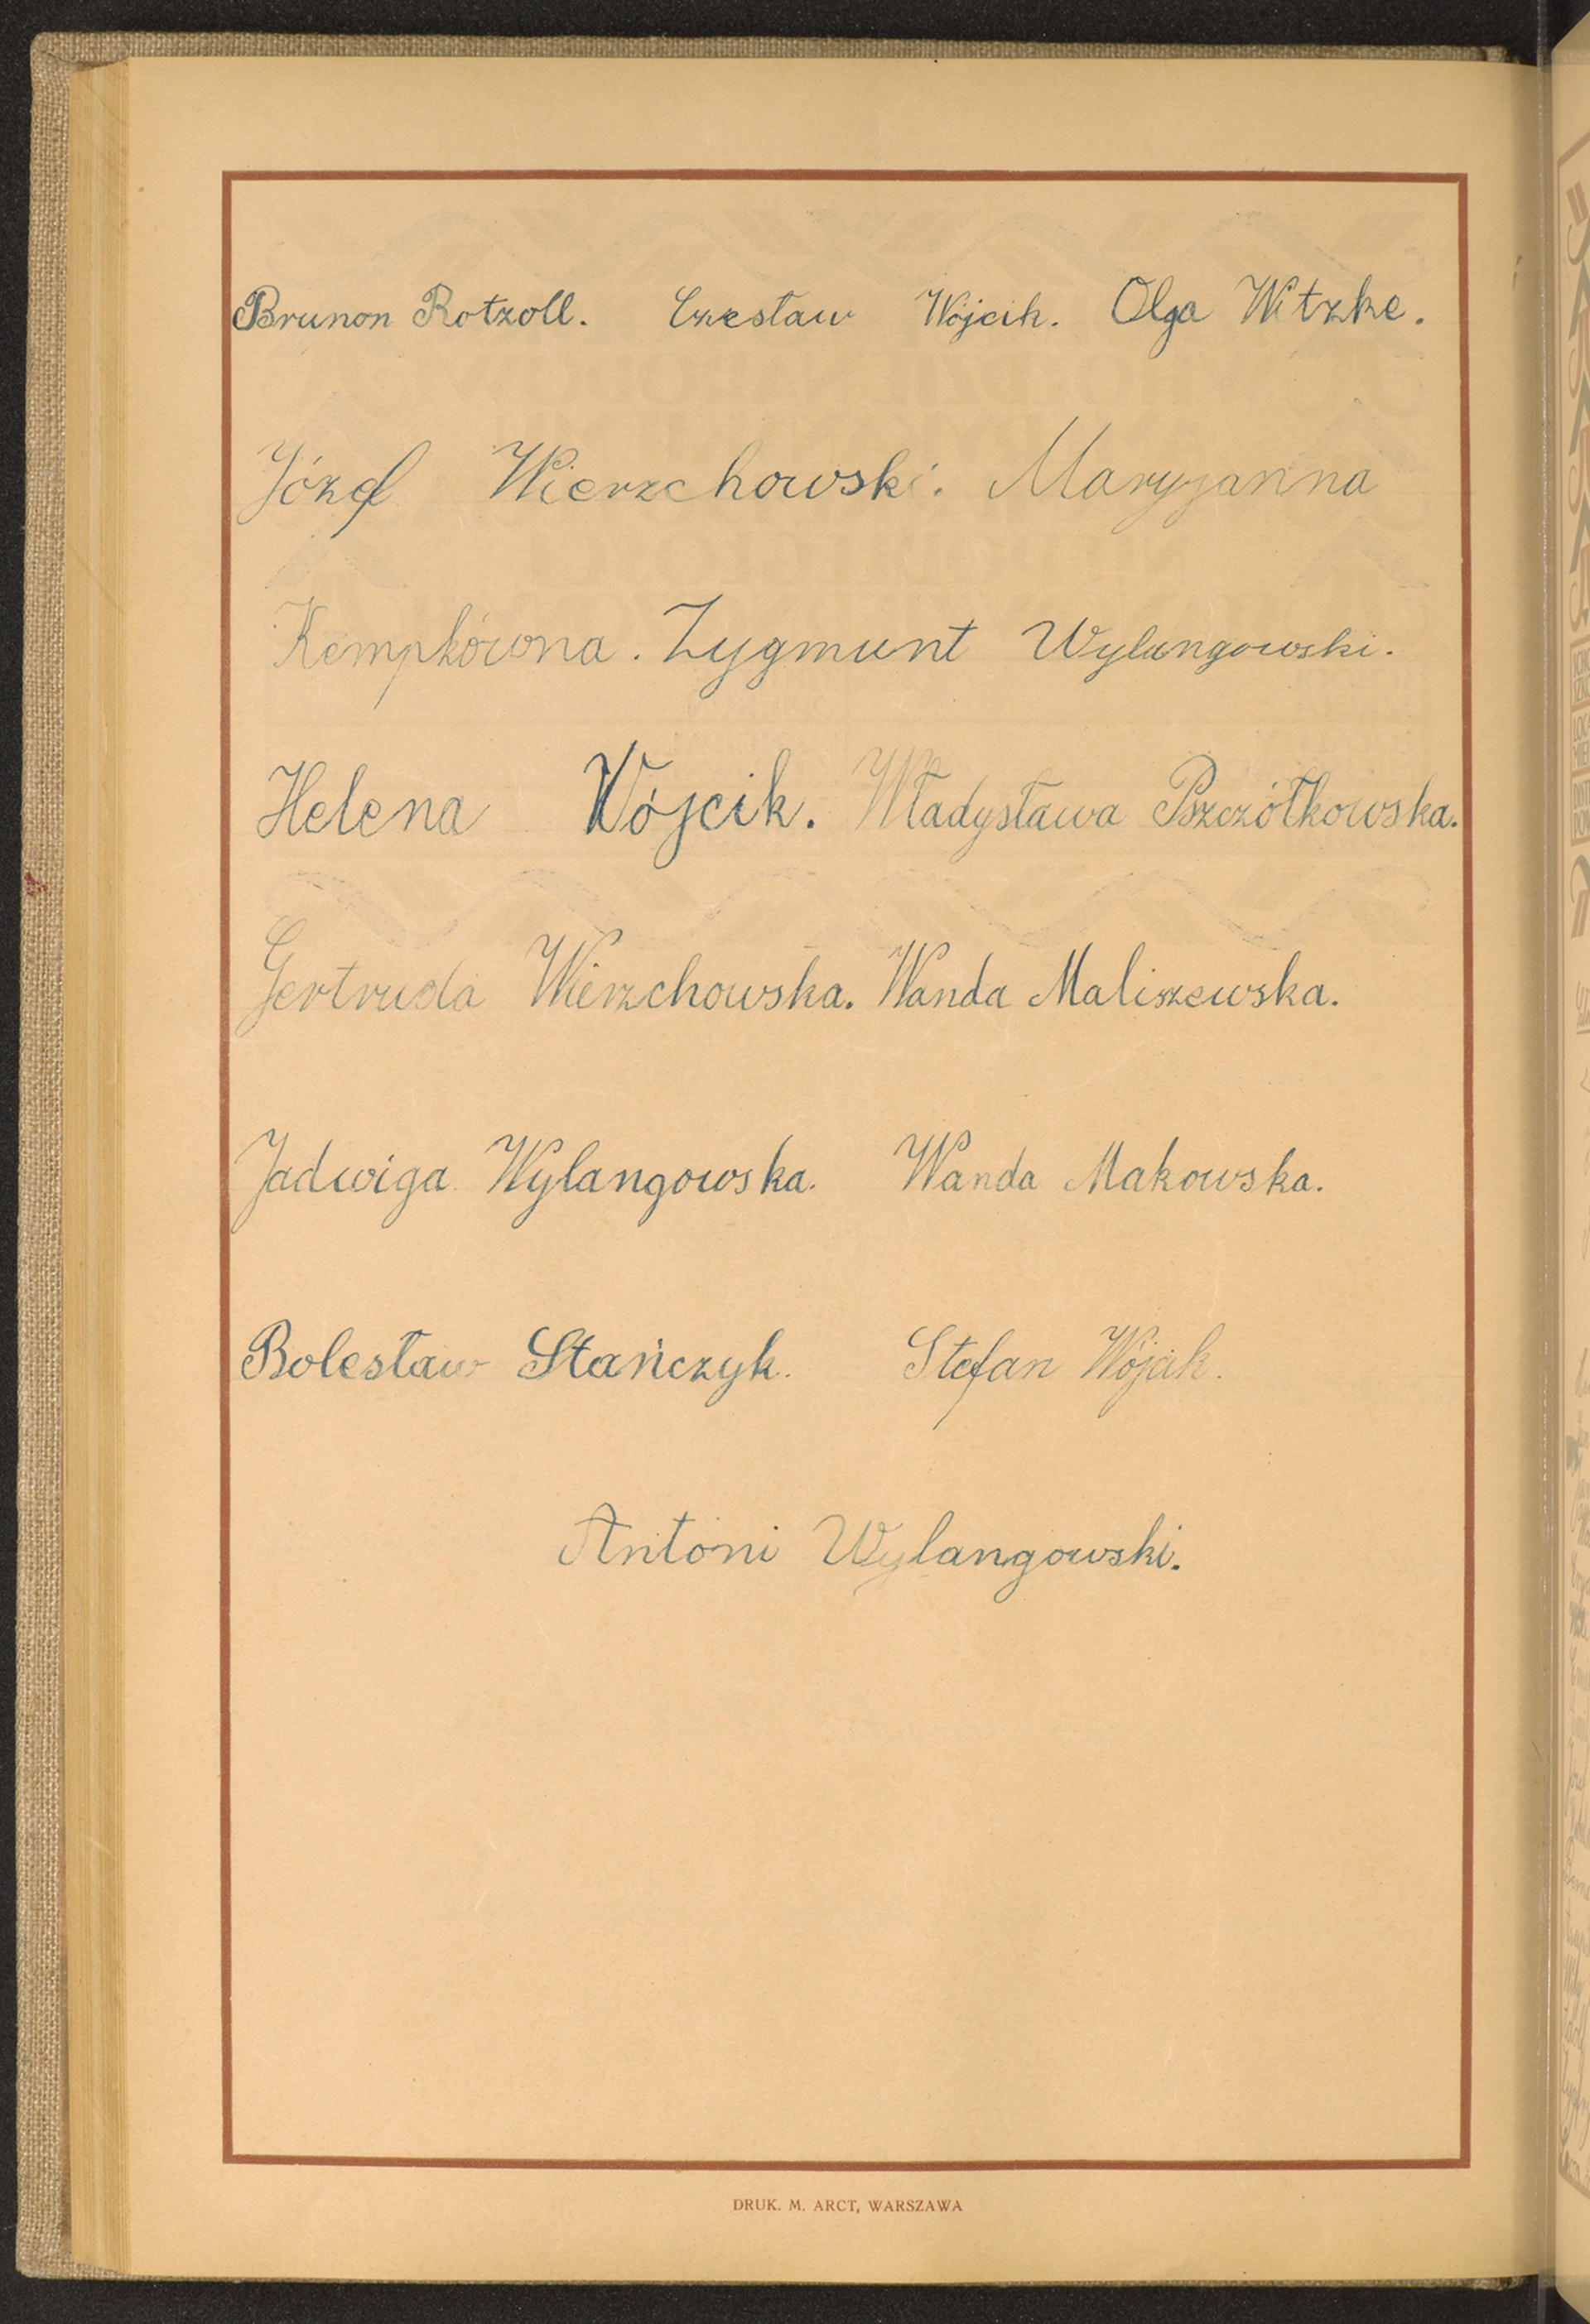 Brunon Rotzoll. Czesław Wójcik. Olga Witzke.
Józef Wierzchowski. Maryjanna
Kempkówna. Zygmunt Wylangowski.
Helena Wójcik. Władysława Pszczółkowska.
Gertruda Wierzchowska. Wanda Maliszewska.
Jadwiga Wylangowska. Wanda Makowska.
Bolesław Stańczyk. Stefan Wójcik.
Antoni Wylangowski.
DRUK. M. ARCT, WARSZAWA